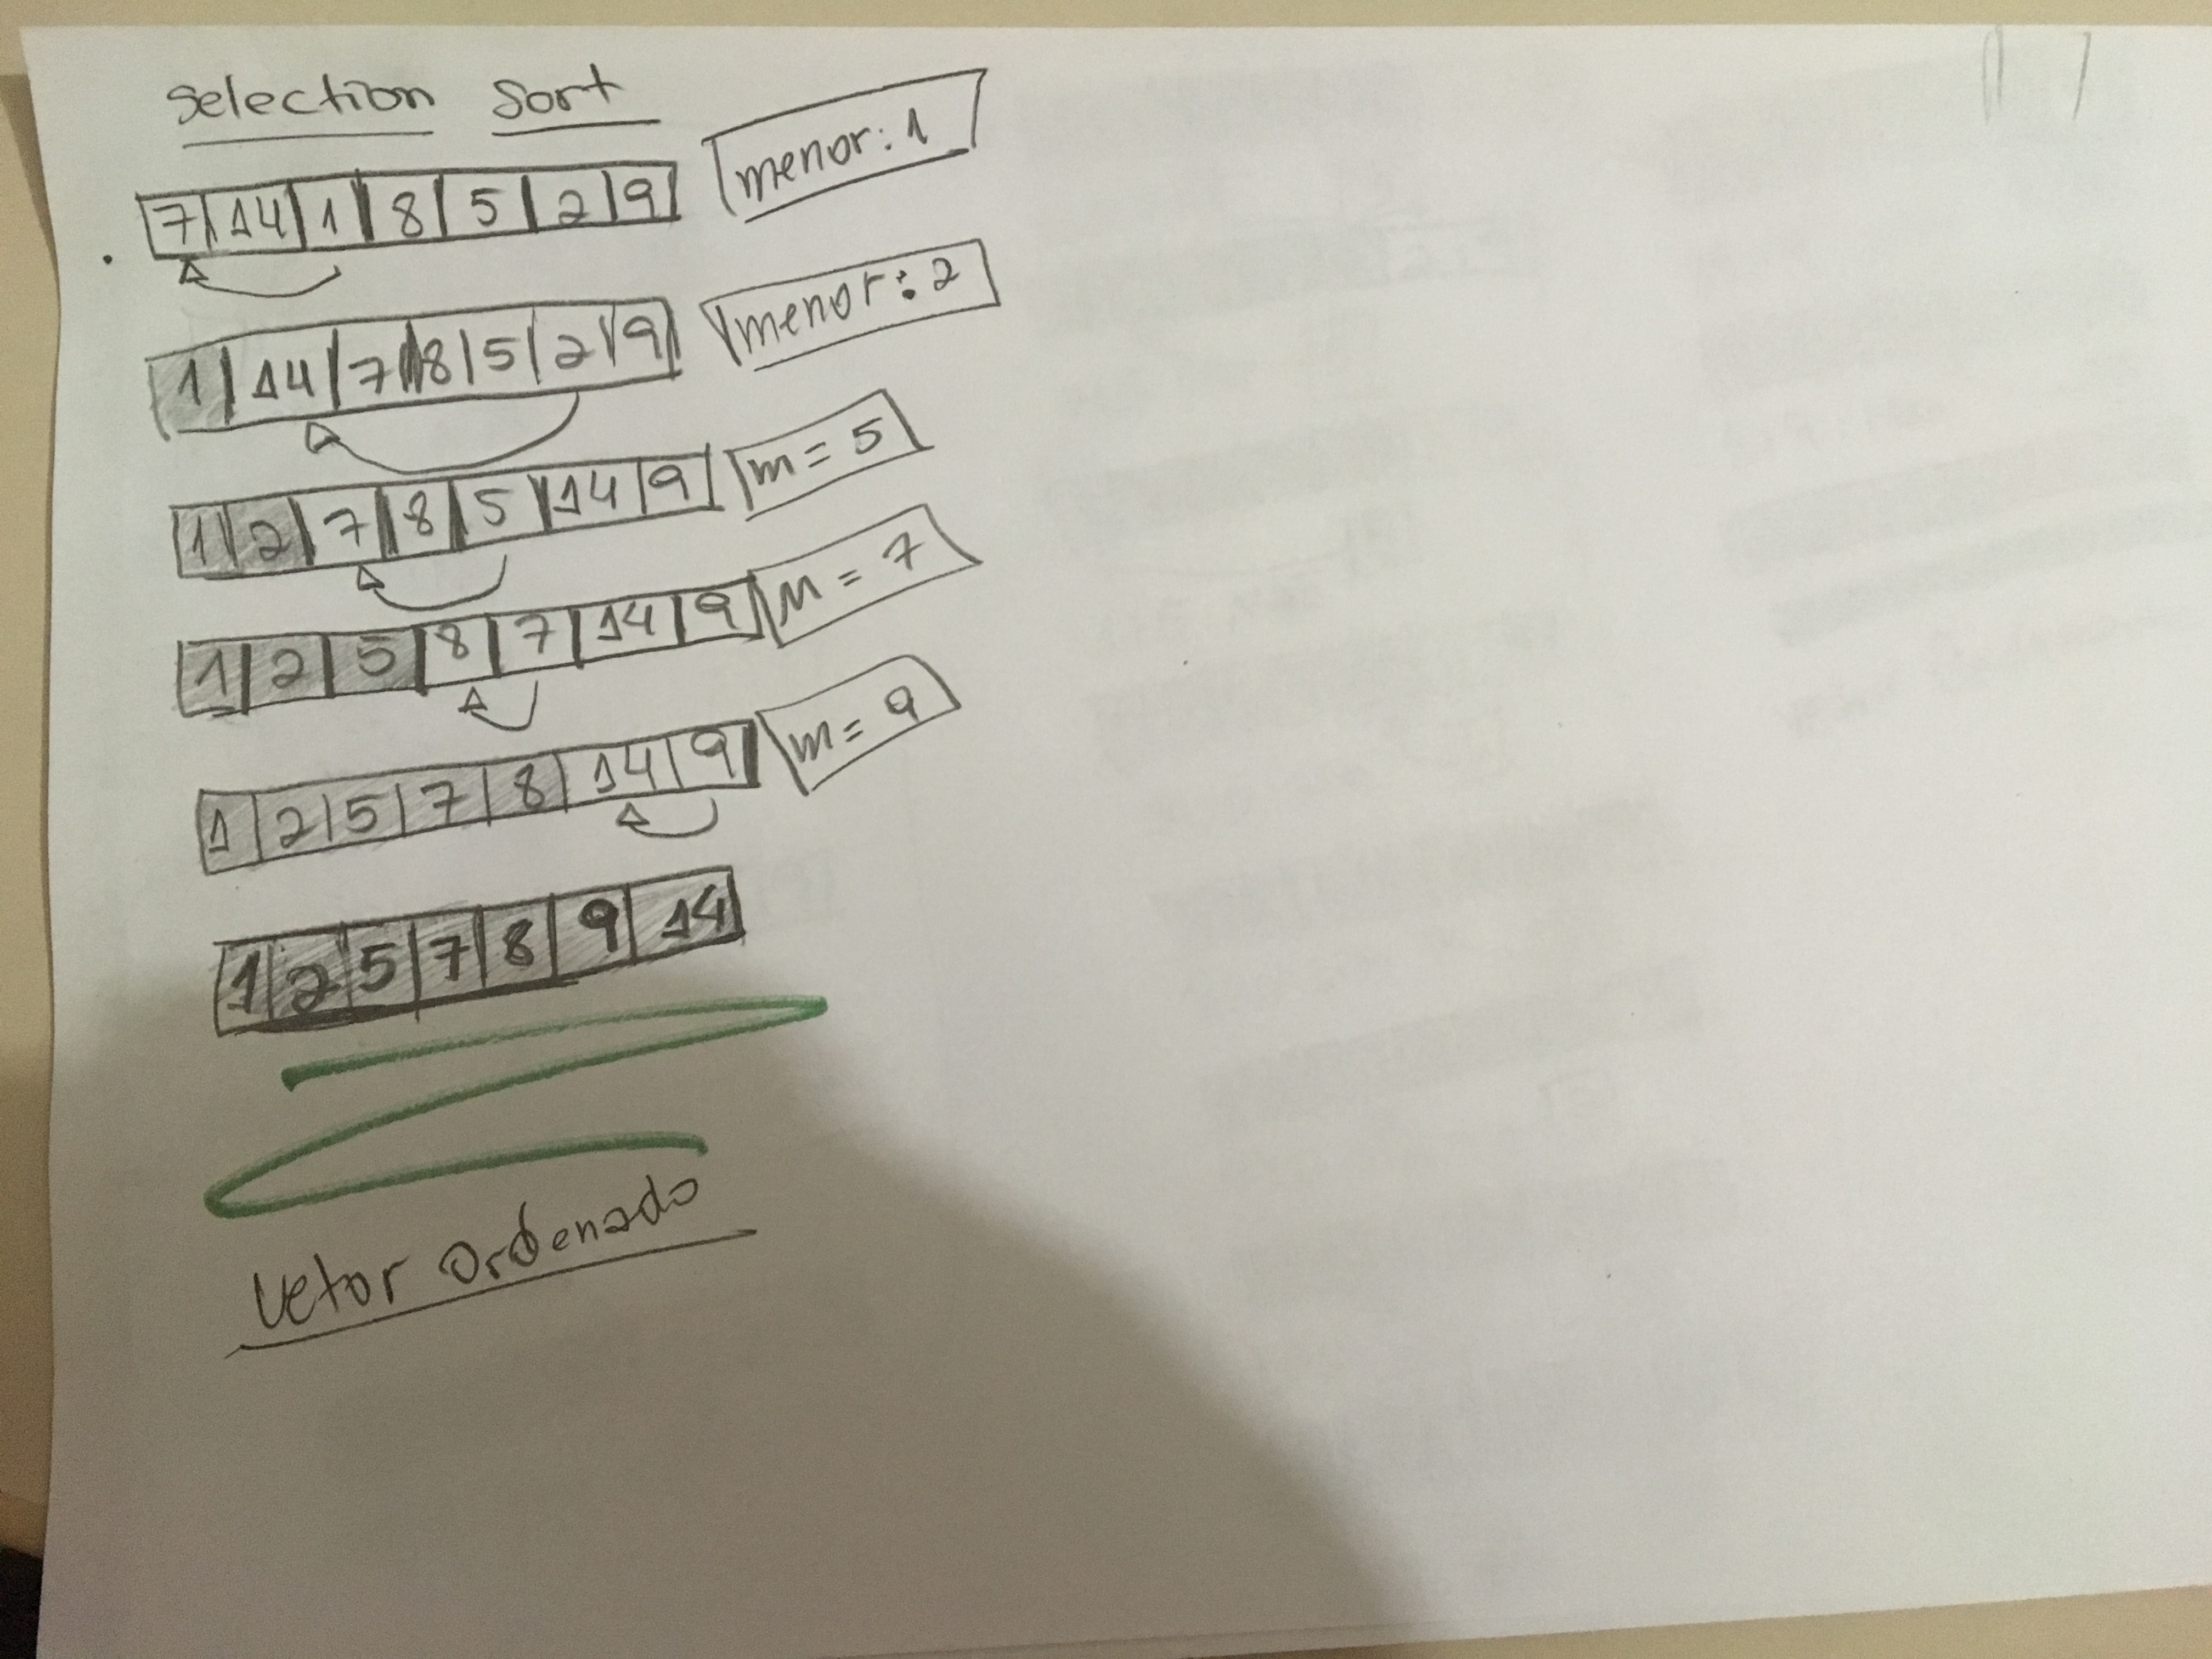 Selection Sort
7 | 14 | 1 | 8 | 5 | 2 | 9 menor: 1
1 | 14 | 7 | 8 | 5 | 2 | 9 menor: 2
1 | 2 | 7 | 8 | 5 | 14 | 9 m = 5
1 | 2 | 5 | 8 | 7 | 14 | 9 m = 7
1 | 2 | 5 | 7 | 8 | 14 | 9 m = 9
1 | 2 | 5 | 7 | 8 | 9 | 14
Vetor Ordenado